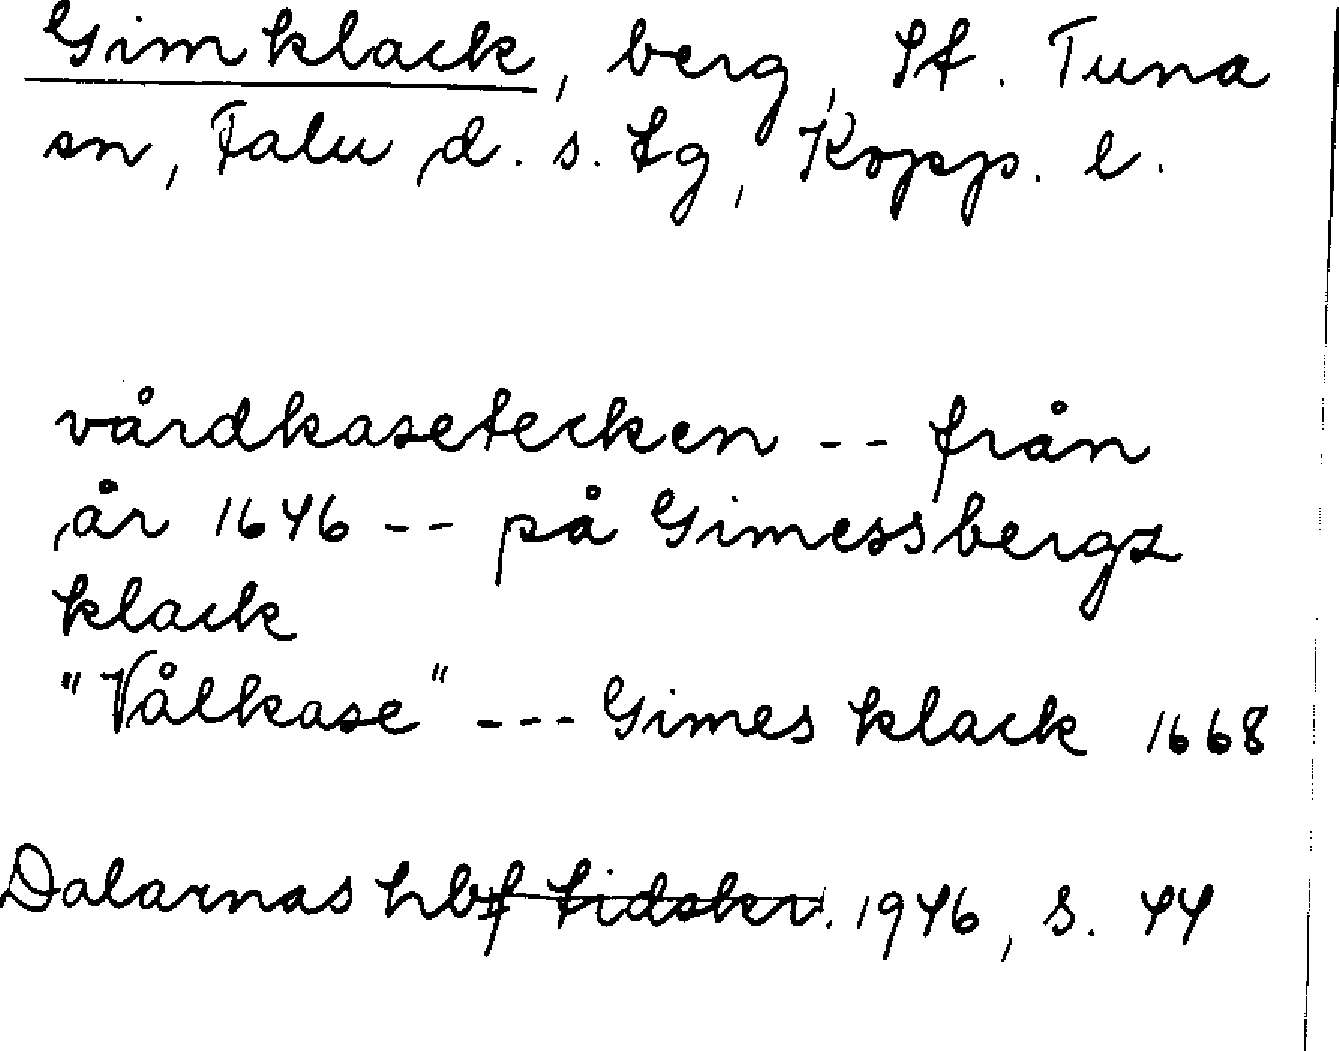 Gimklack, berg, St. Tuna
sn, Falu d. s. tg, Kopp. l.
vårdkasetecken -- från
år 1646 -- på Gimessbergz
klack
"Vålkase" --- Gimes klack 1668
Dalarnas hbf tidskr. 1946, s. 44